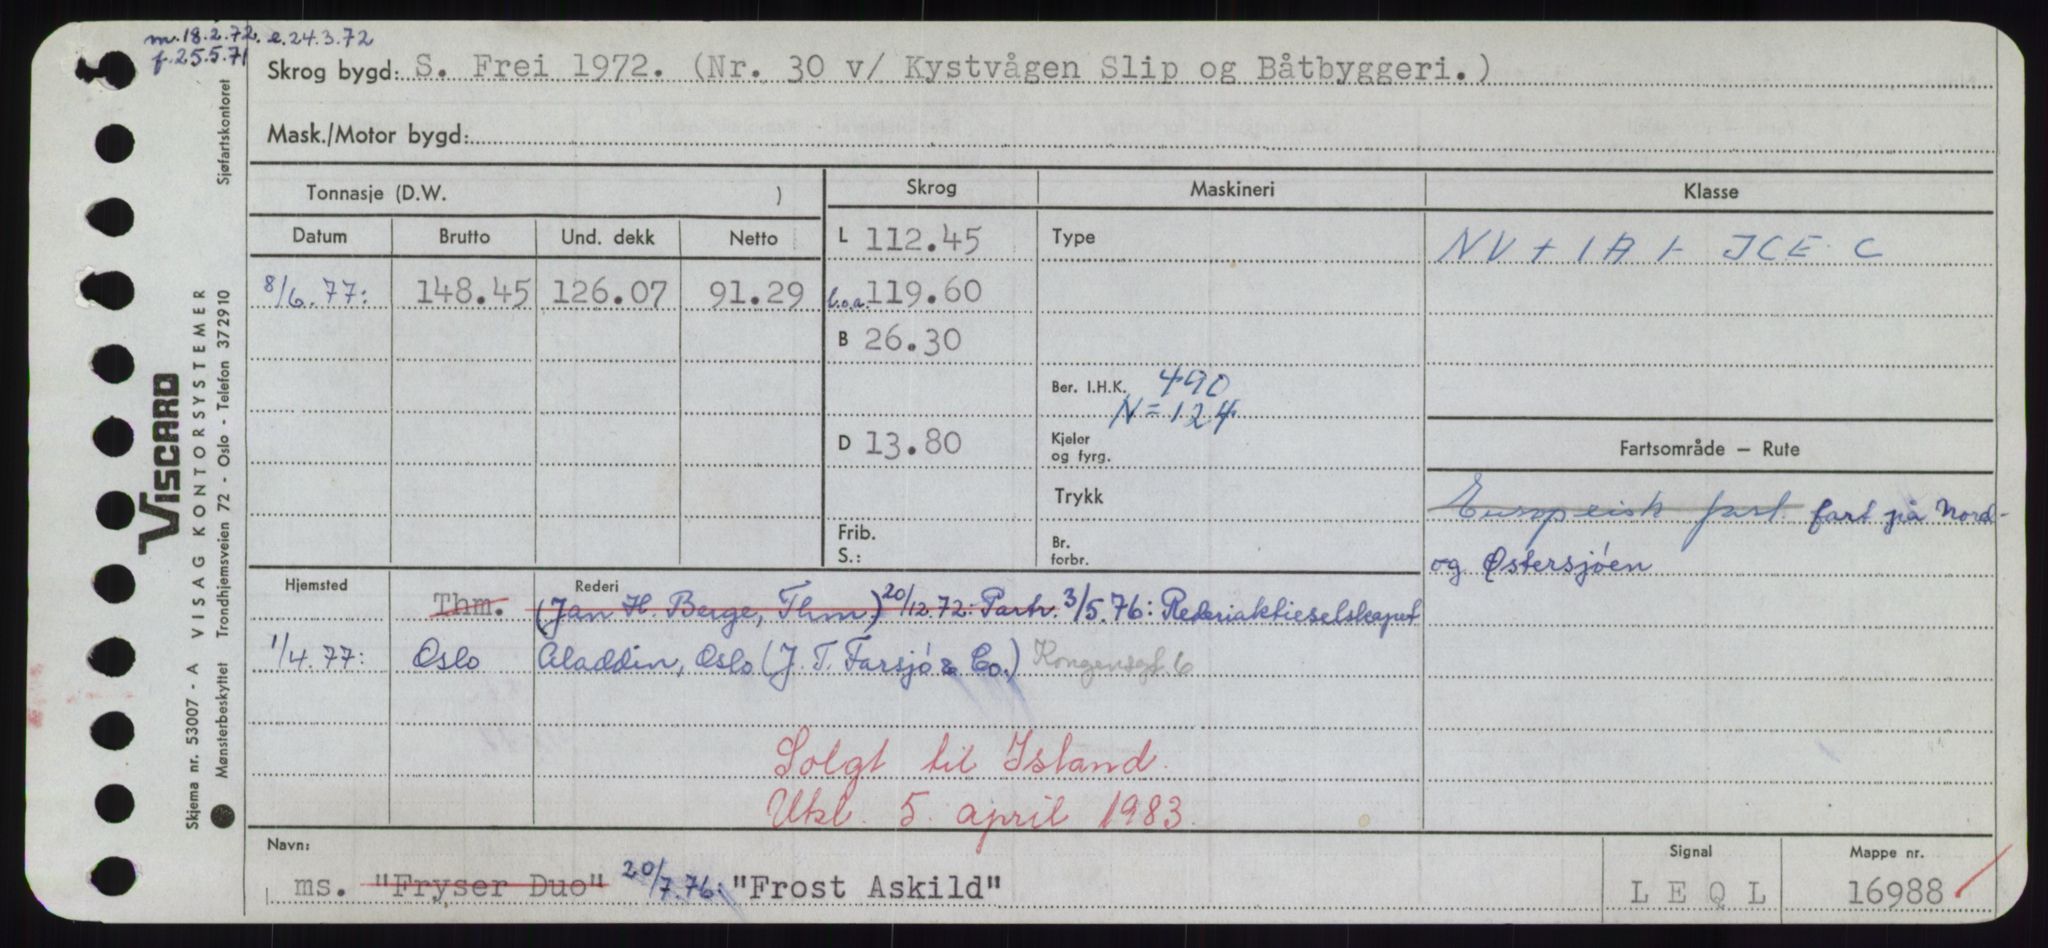 m. 18.2.72. e. 24.3.72
f. 25.5.71
Skrog bygd: S. Frei 1972. (Nr. 30 v/ Kystvågen Slip og Båtbyggeri.)
Mask./Motor bygd:
Tonnasje (D.W. ) Skrog Maskineri Klasse
Datum Brutto Und. dekk Netto L 112.45 Type NV + 1A1 ICE C
8/6.77: 148.45 126.07 91.29 l.o.a. 119.60
B 26.30
Ber. I.H.K. 490
N = 124
D 13.80 Kjeler og fyrg. Fartsområde — Rute
Trykk Europeisk fart. fart på Nord-
Frib. S.: Br. forbr. og Østersjøen
Hjemsted Rederi
Thm. (Jan H. Berge, Thm) 20/12.72: Partr. 3/5.76: Rederiaktieselskapet
1/4.77: Oslo Aladdin, Oslo (J. T. Farsjø & Co.) Kongensgt. 6
Solgt til Island.
Utkl. 5. april 1983.
Navn: Signal Mappe nr.
ms. "Fryser Duo" 20/7.76: "Frost Askild" L E Q L 16988
VISCARD
Skjema nr. 53007 - A VISAG KONTORSYSTEMER
Mønsterbeskyttet Trondhjemsveien 72 - Oslo - Telefon 372910 Sjøfartskontoret